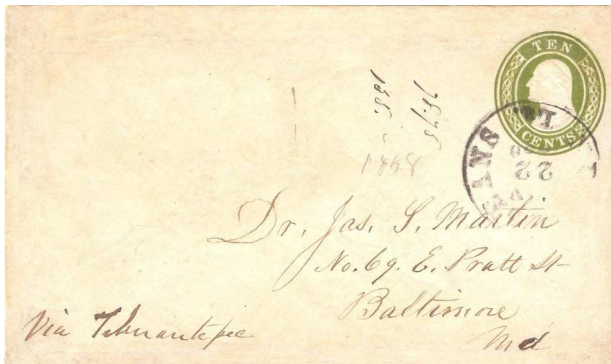 TEN
CENTS
ANS
LA.
22
1858
Dr. Jas. S. Martin
No. 69. E. Pratt St
Baltimore
Md
Via Tehuantepec